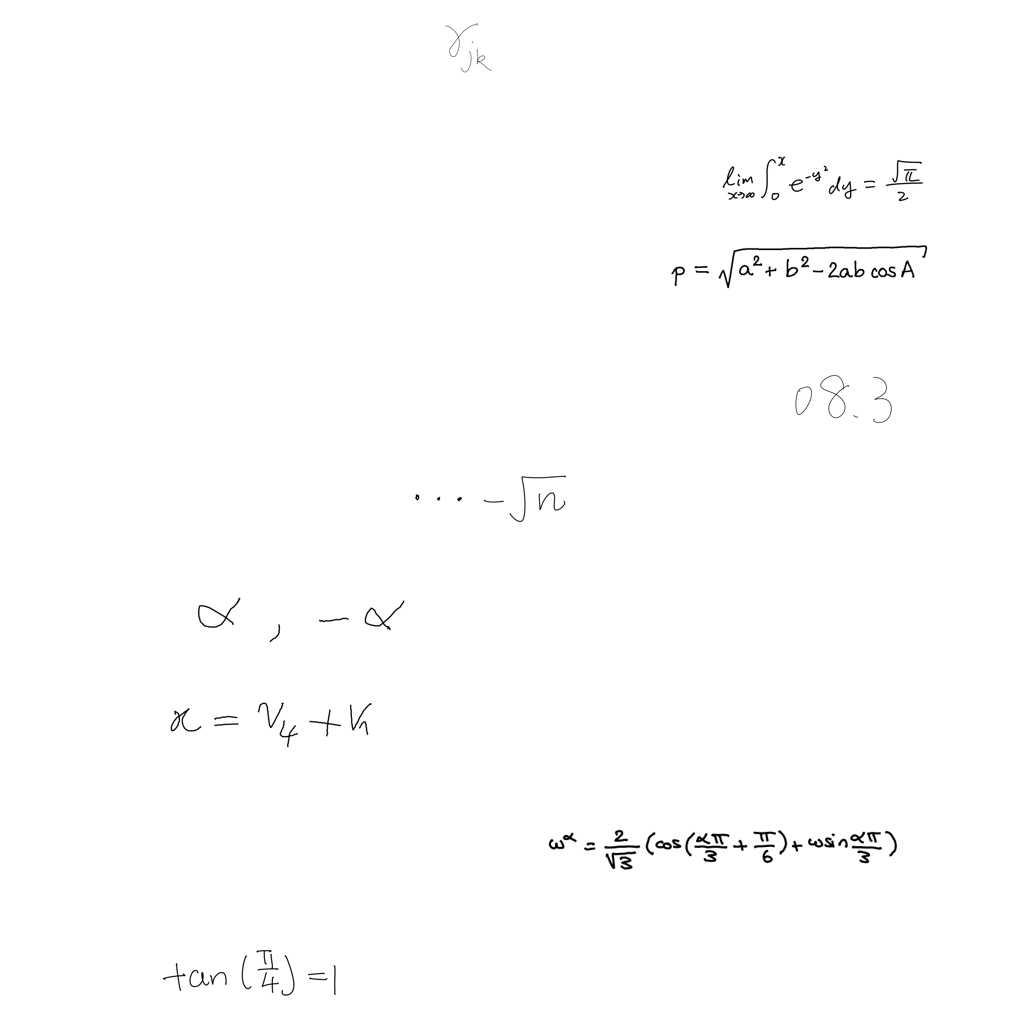 γ_{jk}
\lim_{x→∞} ∫_0^x e^{-y^2} dy = \frac{√π}{2}
p = \sqrt{a^2 + b^2 - 2ab cos A}
08.3
... -√n
α , -α
x = v_4 + v_1
ω^α = \frac{2}{√3} (cos(\frac{απ}{3} + \frac{π}{6}) + ω sin \frac{απ}{3})
tan(\frac{π}{4}) = 1